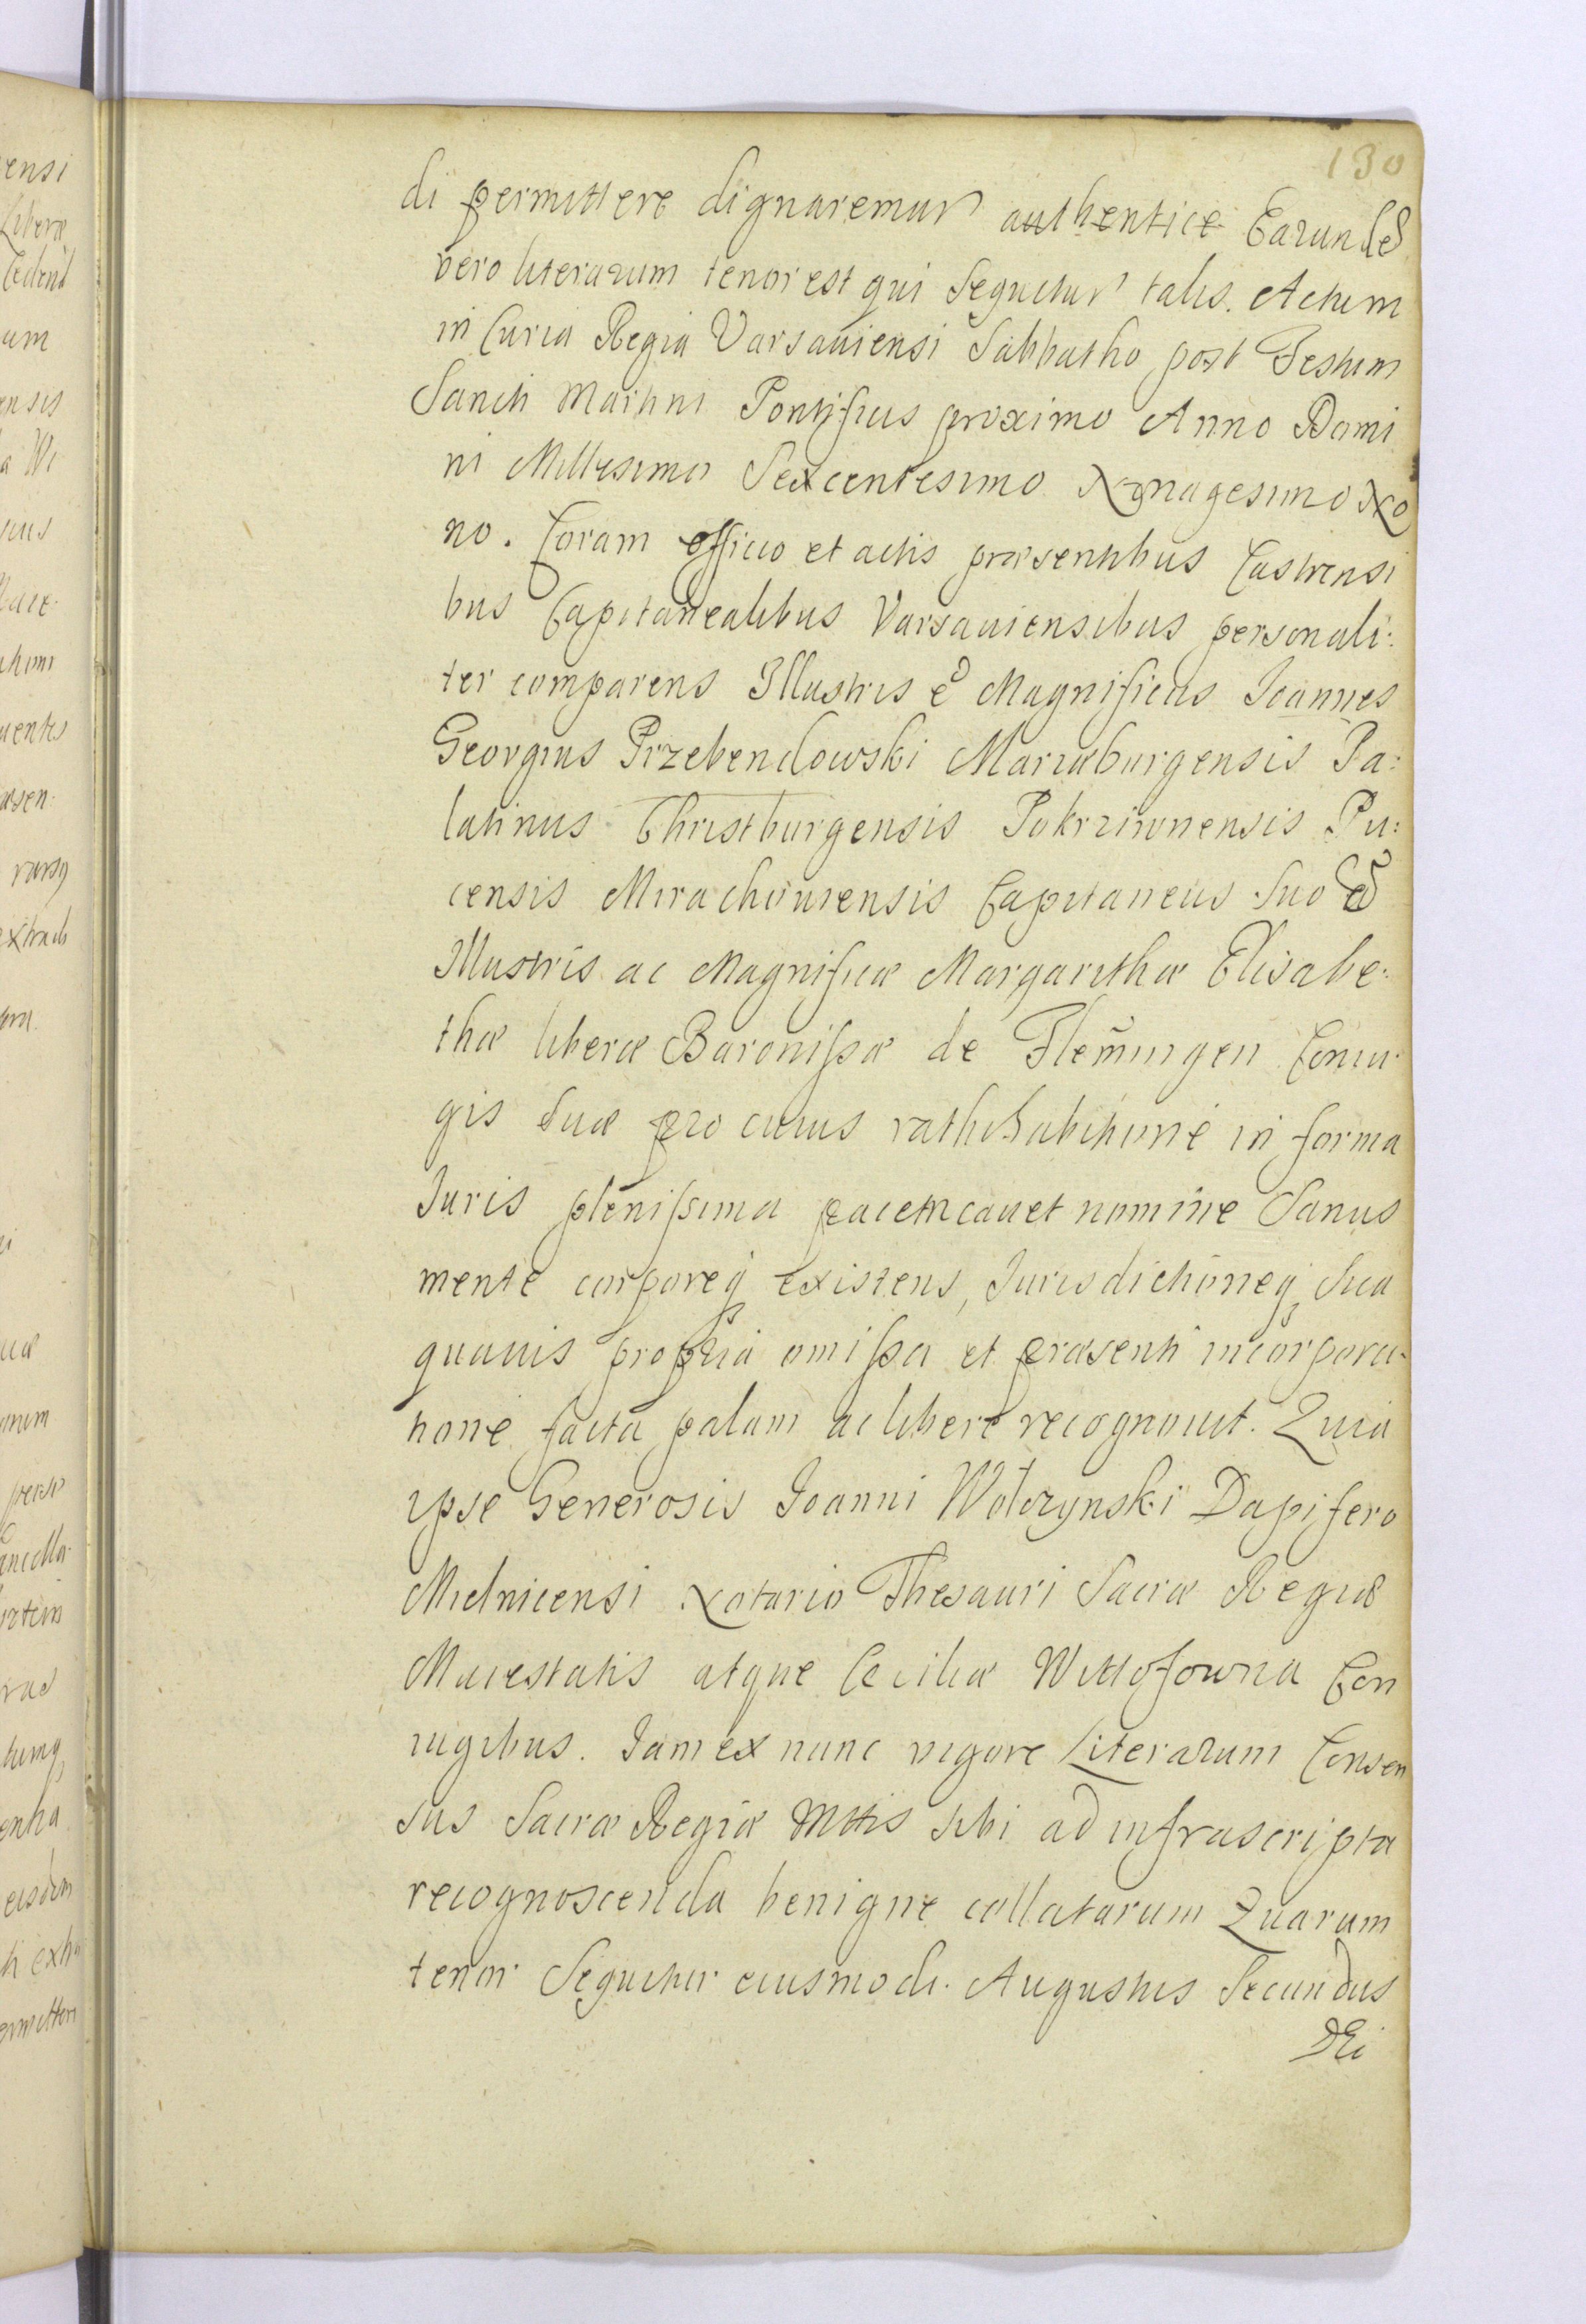 130
di permittere dignaremur authentice Earunde
vero literarum tenor est qui Sequitur talis. Actum
in Curia Regia Varsaviensi Sabbatho post Festum
Sancti Martini Pontificis proximo Anno Domi
ni Millesimo Sexcentesimo Nonagesimo No
no. Coram officio et actis præsentibus Castrensi
bus Capitanealibus Varsaviensibus personali:
ter comparens Illustris & Magnificus Joannes
Georgius Przebendowski Mariæburgensis Pa:
latinus Christburgensis Pokrziwnensis Pu:
censis Mirachoviensis Capitaneus Suo &
Illustris ac Magnificæ Margarithæ Elisabe:
thæ liberæ Baronissæ de Flem̃ingen Coniu:
gis Suæ pro cuius rathihabitione in forma
Juris plenissima pacem cauet nomine Sanus
mente corporeq existens, Jurisdictioneq Sua
quauis propria omissa et præsenti incorpora:
tione facta palam ac libere recognouit. Quia
ipse Generosis Joanni Wołczynski Dapifero
Mielnicensi Notario Thesauri Sacræ Regiæ
Maiestatis atque Ceciliæ Wittofowna Con
iugibus. Jam ex nunc vigore Literarum Consen
sus Sacræ Regiæ Mttis sibi ad infrascripta
recognoscenda benigne collatarum Quarum
tenor Sequitur eiusmodi. Augustus Secundus
DEi